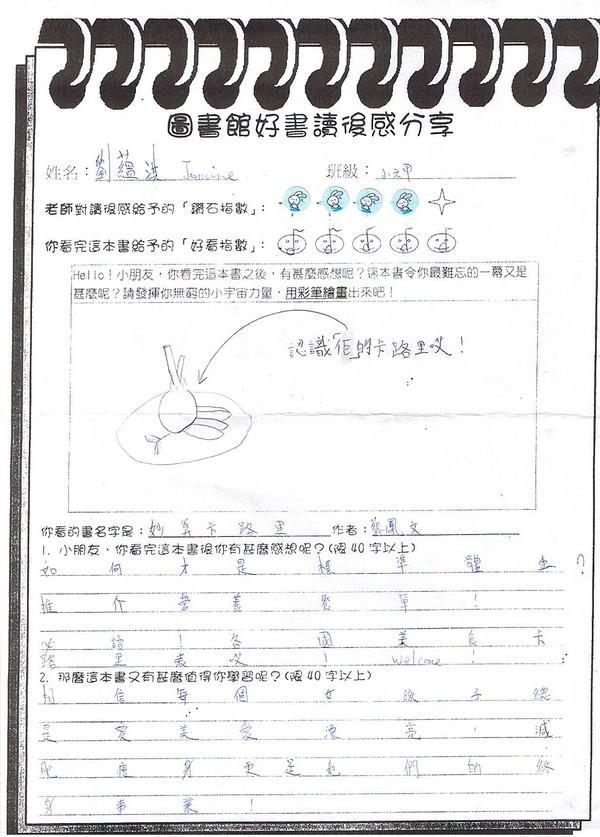 圖書館好書讀後感分享
姓名：劉蘊淇 Janine 班級：小六甲
老師對讀後感給予的「鑽石指數」：
你看完這本書給予的「好看指數」：
Hello！小朋友，你看完這本書之後，有甚麼感想呢？這本書令你最難忘的一幕又是
甚麼呢？請發揮你無窮的小宇宙力量，用彩筆繪畫出來吧！
認識「佢」的卡路里哎！
你看的書名字是：妙算卡路里 作者：蔡鳳文
1. 小朋友，你看完這本書後你有甚麼感想呢？(限40字以上)
如何才是標準體重？
推介營養菜單！
必讀！各國美食卡
路里表哎！Welcome！
2. 那麼這本書又有甚麼值得你學習呢？(限40字以上)
相信每個女孩子總
是愛美愛漂亮，減
肥瘦身更是她們的終
身事業！